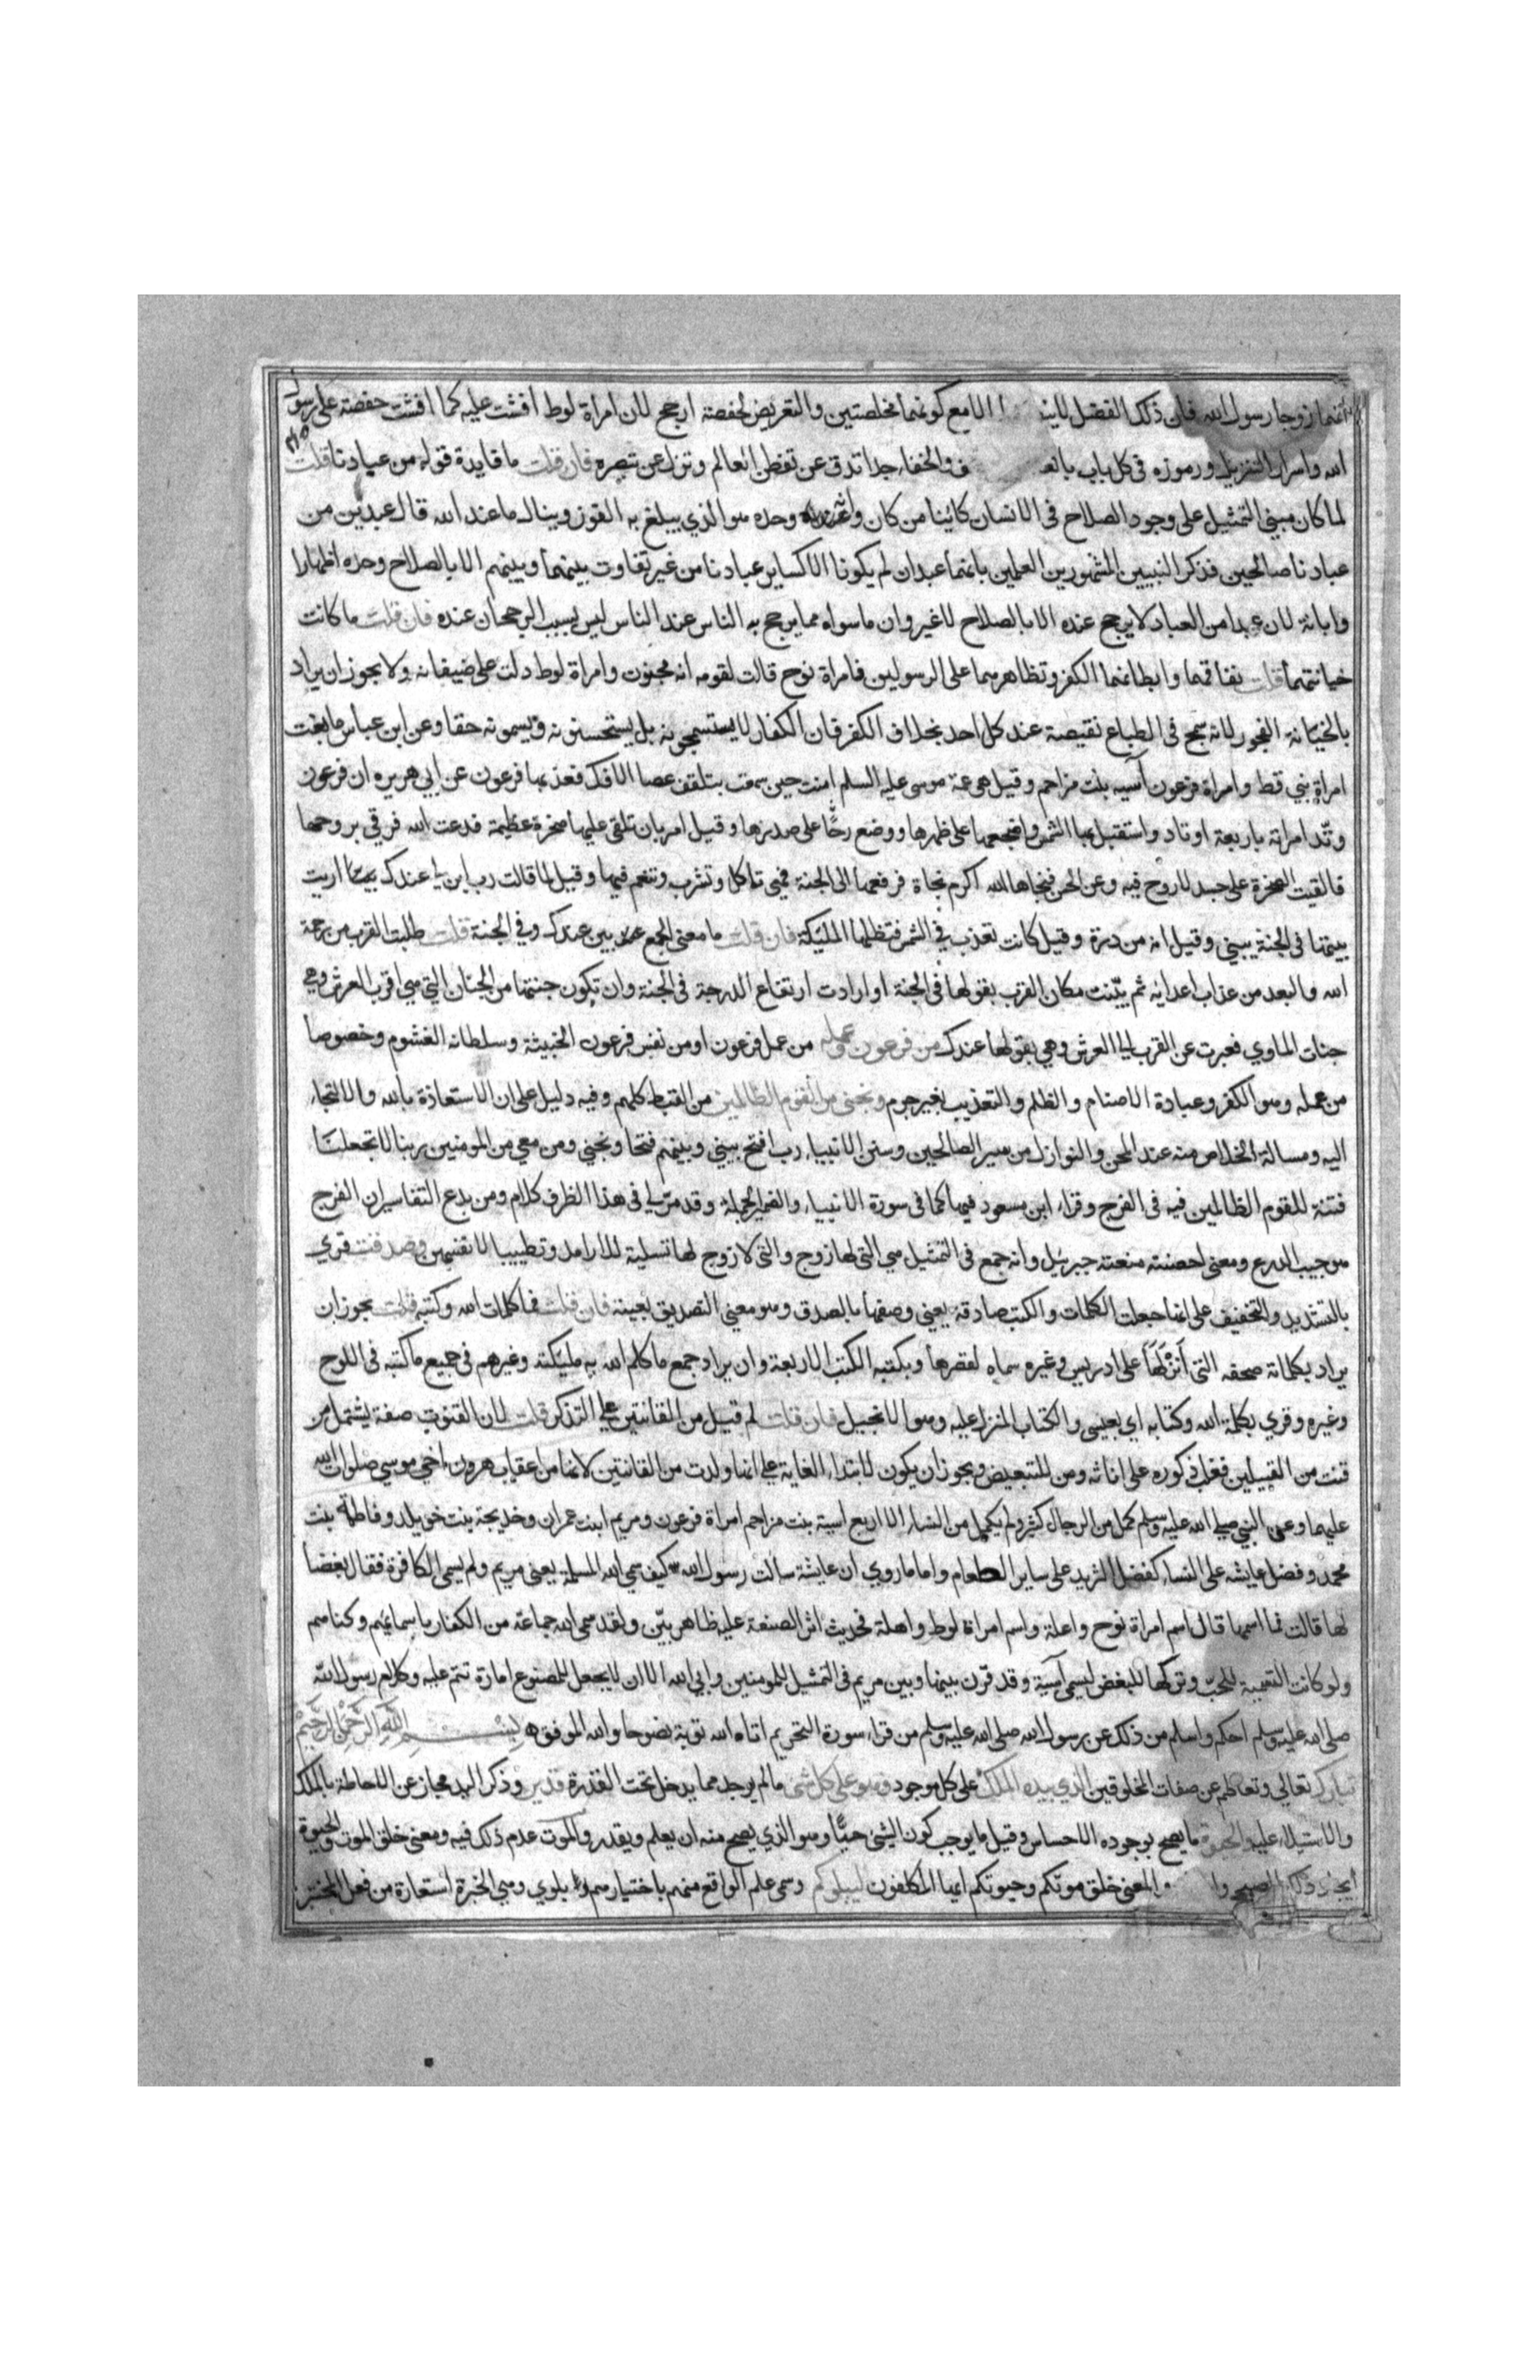 انهما زوجا رسول الله فان ذلك الفضل لاينـ ـا الا مع كونهما مخلصتين والتعريض لحفصة ارجح لان امراة لوط افشت عليه كما افشت حفصة على رسول
الله واسرار التنزيل ورموزه فى كل باب بالغـ ـف والخفاء جدا تدق عن تفطن العالم وتزل عن تبصره فان قلت ما فايدة قوله من عبادنا قلت
لما كان مبنى التمثيل على وجود الصلاح فى الانسان كائنا من كان وانه وحده هو الذي يبلغ به الفوز وينال ما عند الله قال عبدين من
عبادنا صالحين فذكر النبيين المشهورين العلمين بانهما عبدان لم يكونا الا كساير عبادنا من غير تفاوت بينهما وبينهم الا بالصلاح وحده اظهارا
وابانة لان عبدا من العباد لا يرجح عنده الا بالصلاح لا غير وان ما سواه مما يرجح به الناس عند الناس ليس بسبب الرجحان عنده فان قلت ما كانت
خيانتهما قلت نفاقهما وابطانهما الكفر وتظاهرهما على الرسولين فامراة نوح قالت لقومه انه مجنون وامراة لوط دلت على ضيفانه ولا يجوز ان يراد
بالخيانة الفجور لانه سمج فى الطباع نقيصة عند كل احد بخلاف الكفر فان الكفار لا يستسمجونه بل يستحسنونه ويسمونه حقا وعن ابن عباس ما بغت
امراة نبي قط وامراة فرعون آسيه بنت مزاحم وقيل هي عمة موسى عليه السلم امنت حين سمعت بتلقف عصا الافك فعذبها فرعون عن ابي هريره ان فرعون
وتّد امراته باربعة اوتاد واستقبل بها الشمس واضجعها على ظهرها ووضع رحًا على صدرها وقيل امر بان تلقى عليها صخرة عظيمة فدعت الله فرقي بروحها
فالقيت الصخرة على جسد لا روح فيه وعن الحسن فنجاها الله اكرم نجاة فرفعها الى الجنة فهي تاكل وتشرب وتنعم فيها وقيل لما قالت رب ابن لي عندك بيتا اريت
بيتها فى الجنة يبنى وقيل انه من درة وقيل كانت تعذب في الشمس فتظلها المليكة فان قلت ما معنى الجمع بين عندك وفي الجنة قلت طلبت القرب من رحمة
الله والبعد من عذاب اعدايه ثم بيّنت مكان القرب بقولها فى الجنة او ارادت ارتفاع الدرجة فى الجنة وان تكون جنتها من الجنان التي هي اقرب الى العرش وهي
جنات الماوي فعبرت عن القرب الى العرش بقولها عندك من فرعون وعمله من عمل فرعون او من نفس فرعون الخبيثة وسلطانه الغشوم وخصوصا
من عمله وهو الكفر وعبادة الاصنام والظلم والتعذيب بغير جرم ونجنى من القوم الظالمين من القبط كلهم وفيه دليل على ان الاستعاذة بالله والالتجاء
اليه ومسالة الخلاص منه عند المحن والنوازل من سير الصالحين وسنن الانبياء رب افتح بيني وبينهم فتحا ونجني ومن معي من المومنين ربنا لا تجعلنا
فتنة للقوم الظالمين فيه فى الفرج وقراء ابن مسعود فيها كما فى سورة الانبياء والضمير للجملة وقد مرّ لي فى هذا الظرف كلام ومن بدع التفاسير ان الفرج
هو جيب الدرع ومعنى احصنته منعته جبرئيل وانه جمع فى التمثيل بين التى لها زوج والتى لا زوج لها تسلية للارامل وتطييبا لانفسهن وصدقت قري
بالتشديد والتخفيف على انها جعلت الكلمات والكتب صادقة يعني وصفتها بالصدق وهو معنى التصديق بعينه فان قلت فما كلمات الله وكتبه قلت يجوز ان
يراد بكلماته صحفه التى انزلها على ادريس وغيره سماه لقصرها وبكتبه الكتب الاربعة وان يراد جميع ما كلم الله به مليكته وغيرهم فى جميع ما كتبه فى اللوح
وغيره وقري بكلمة الله وكتابه اي بعيسى والكتاب المنزل عليه وهو الانجيل فان قلت لم قيل من القانتين على التذكر قلت لان القنوت صفة يشتمل من
قنت من القبيلين فغلب ذكوره على اناثه ومن للتبعيض ويجوز ان يكون لابتداء الغاية على انها ولدت من القانتين لانها من اعقاب هرون اخي موسي صلوات الله
عليهما وعن النبي صلى الله عليه وسلم كمل من الرجال كثير ولم يكمل من النساء الا اربع اسية بنت مزاحم امراة فرعون ومريم ابنت عمران وخديجة بنت خويلد وفاطمة بنت
محمد وفضل عايشه على النساء كفضل الثريد على ساير الطعام واما ما روي ان عايشة سالت رسول الله كيف سمى الله المسلمة يعنى مريم ولم يسمى الكافرة فقال بغضا
لها قالت فما اسمها قال اسم امراة نوح واعلة واسم امراة لوط واهلة فحديث اثر الصنعة عليه ظاهر بيّن ولقد سمى الله جماعة من الكفار باسمائهم وكناهم
ولو كانت التسمية للحبّ وتركها للبغض لسمى آسية وقد قرن بينها وبين مريم فى التمثيل للمومنين وابي الله الا ان لا يجعل للمصنوع امارة تنمّ عليه وكلام رسول الله
صلى الله عليه وسلم احكم واسلم من ذلك عن رسول الله صلى الله عليه وسلم من قراء سورة التحريم اتاه الله توبة نصوحا والله الموفق بسم الله الرحمن الرحيم
تبارك تعالي وتعاظم عن صفات المخلوقين الذي بيده الملك على كل موجود وهو على كل شي ما لم يوجد مما يدخل تحت القدرة قدير وذكر اليد مجاز عن الاحاطة بالملك
والاستيلاء عليه والحيوة ما يصح بوجوده الاحساس وقيل ما يوجب كون الشيئ حيّا وهو الذي يصح منه ان يعلم ويقدر والموت عدم ذلك فيه ومعنى خلق الموت والحيوة
ايجاد ذلك المصحح وا والمعنى خلق موتكم وحيوتكم ايها المكلفون ليبلوكم وسمى علم الواقع منهم باختيارهم بلوي وهي الخبرة استعارة من فعل المختبر